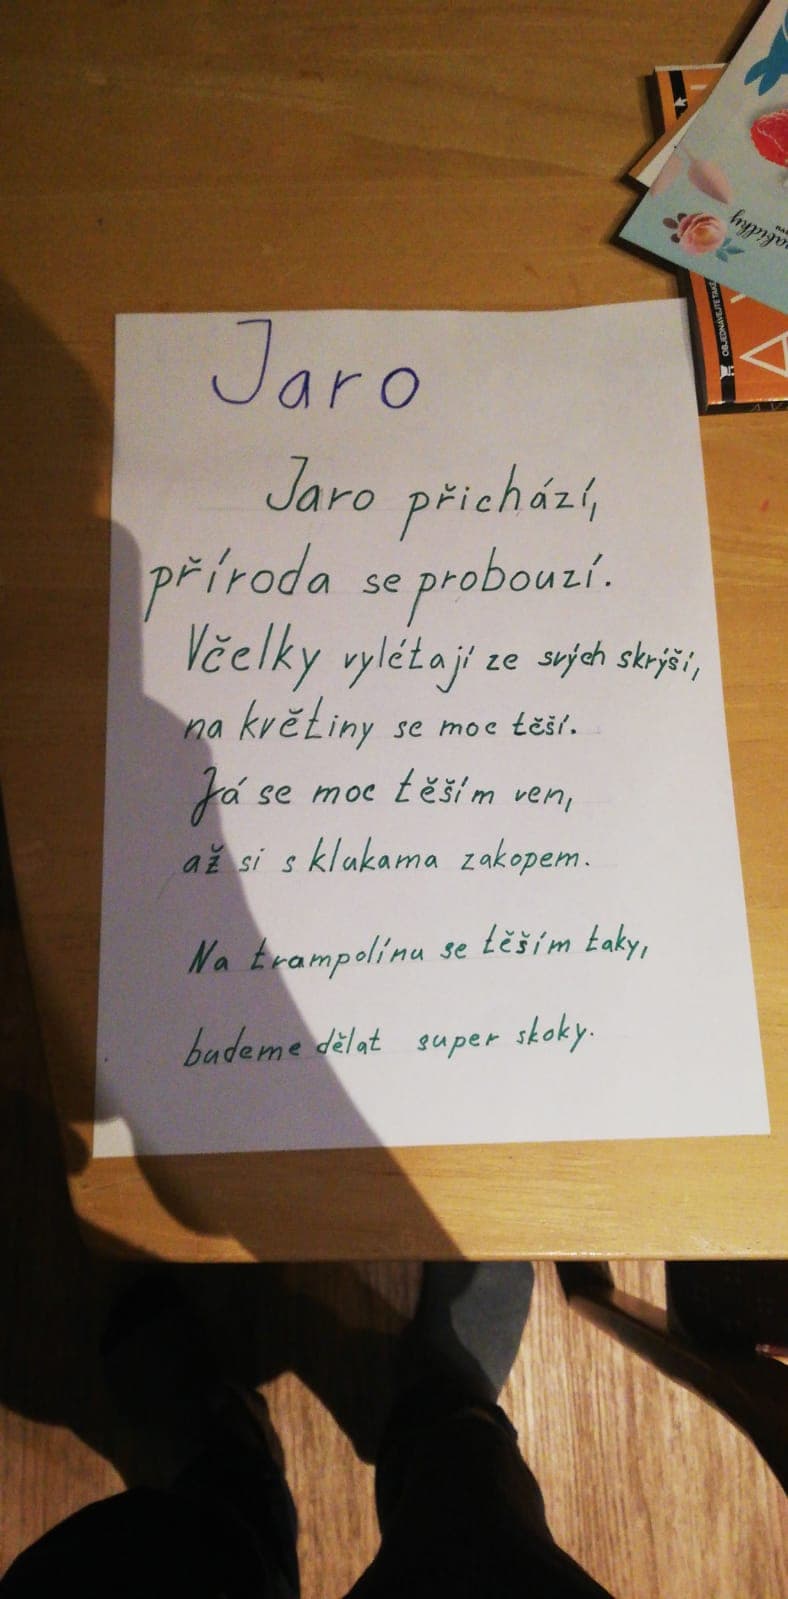 Jaro
Jaro přichází,
příroda se probouzí.
Včelky vylétají ze svých skrýší,
na květiny se moc těší.
Já se moc těším ven,
až si s klukama zakopem.
Na trampolínu se těším taky,
budeme dělat super skoky.
nabídky
OBJEDNÁVEJTE TAKÉ